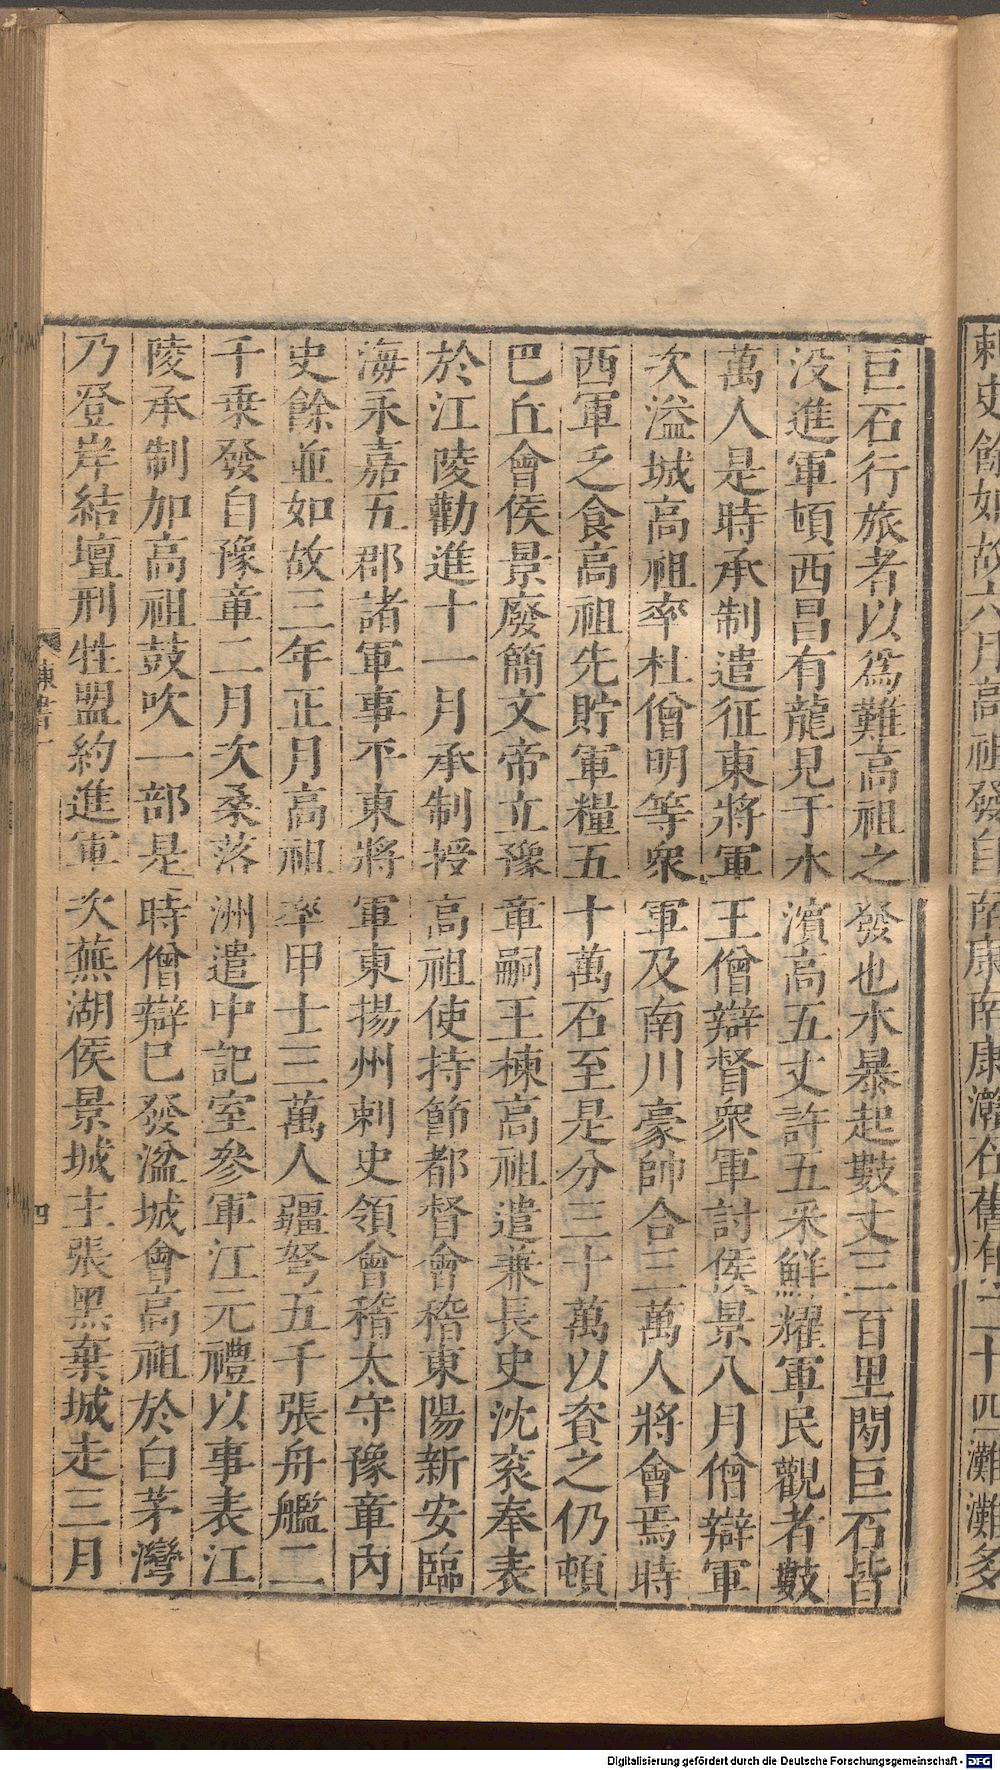 剌史餘如故六月高祖發自南康南康灨石舊有二十四灘灘多
巨石行旅者以爲難高祖之發也水暴起數丈三百里閒巨石皆
没進軍頓西昌有龍見于水濱高五丈許五釆鮮耀軍民觀者數
萬人是時承制遣征東將軍王僧辯督衆軍討侯景八月僧辯軍
次湓城高祖率杜僧明等衆軍及南川豪帥合三萬人將會焉時
西軍乏食高祖先貯軍糧五十萬石至是分三十萬以資之仍頓
巴丘會侯景廢簡文帝立豫章嗣王棟高祖遣兼長史沈衮奉表
於江陵勸進十一月承制授高祖使持節都督會稽東陽新安臨
海永嘉五郡諸軍事平東將軍東揚州剌史領會稽太守豫章内
史餘並如故三年正月高祖率甲士三萬人彊弩五千張舟艦二
千乗發自豫章二月次桑落洲遣中記室參軍江元禮以事表江
陵承制加高祖鼓吹一部是時僧辯已發湓城會高祖於白茅灣
乃登岸結壇刑牲盟約進軍次蕪湖侯景城主張黑棄城走三月
陳書一
四
Digitalisierung gefördert durch die Deutsche Forschungsgemeinschaft - DFG